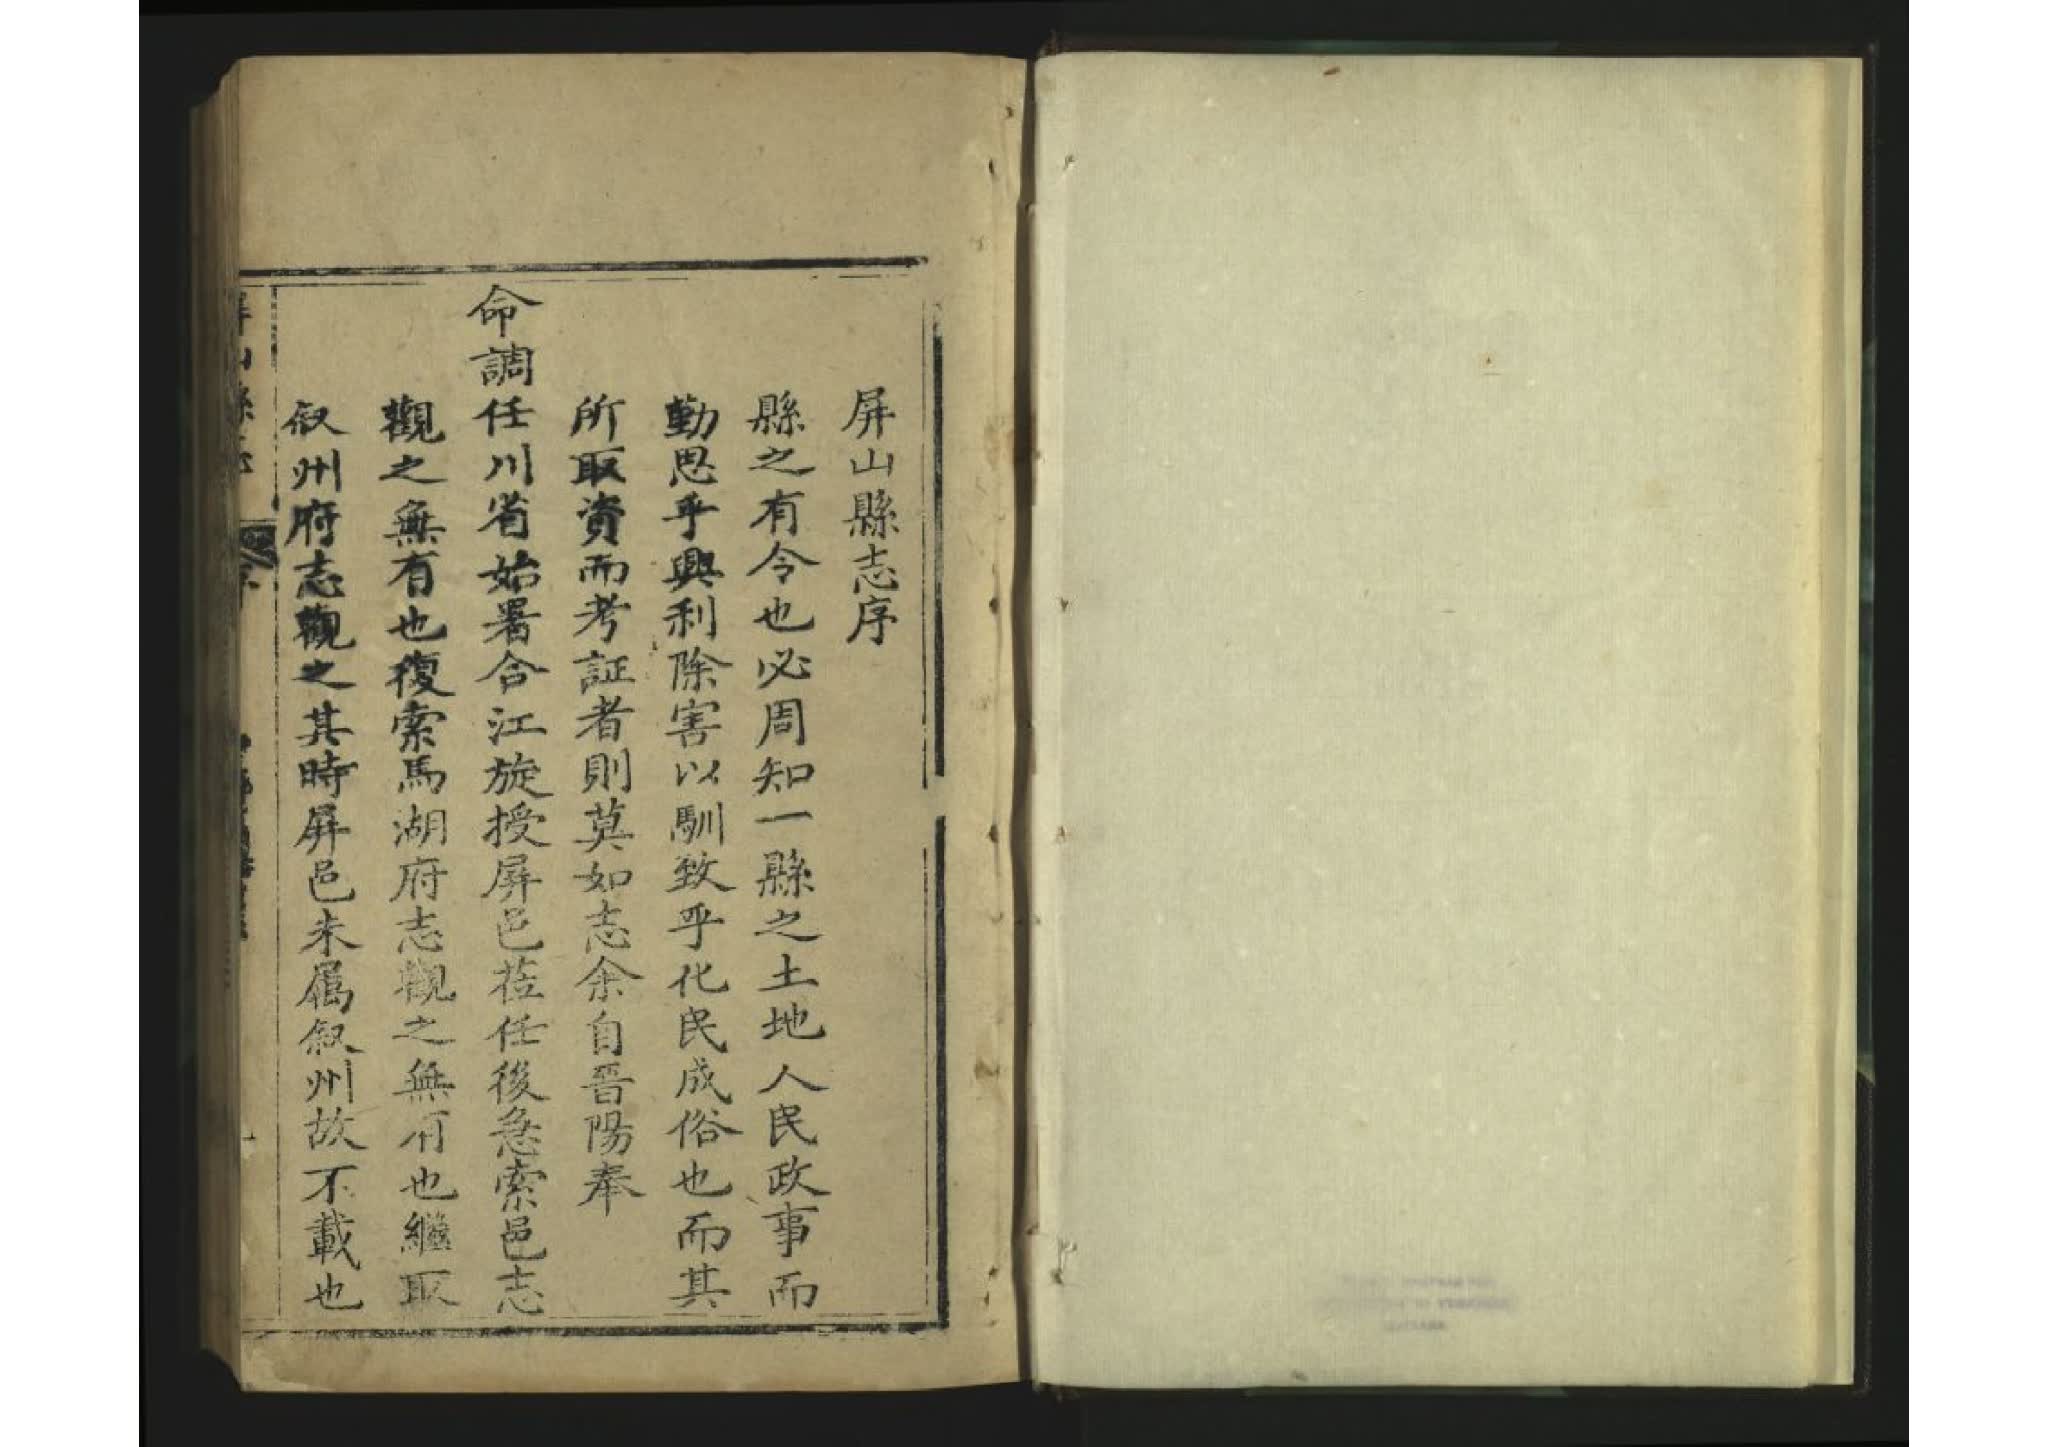 屏山縣志序
縣之有令也必周知一縣之土地人民政事而
勤思乎興利除害以馴致乎化民成俗也而其
所取資而考証者則莫如志余自晉陽奉
命調任川省始署合江旋授屏邑莅任後急索邑志
觀之無有也復索馬湖府志觀之無有也繼取
叙州府志觀之其時屏邑未屬叙州故不載也
屏山縣志
序